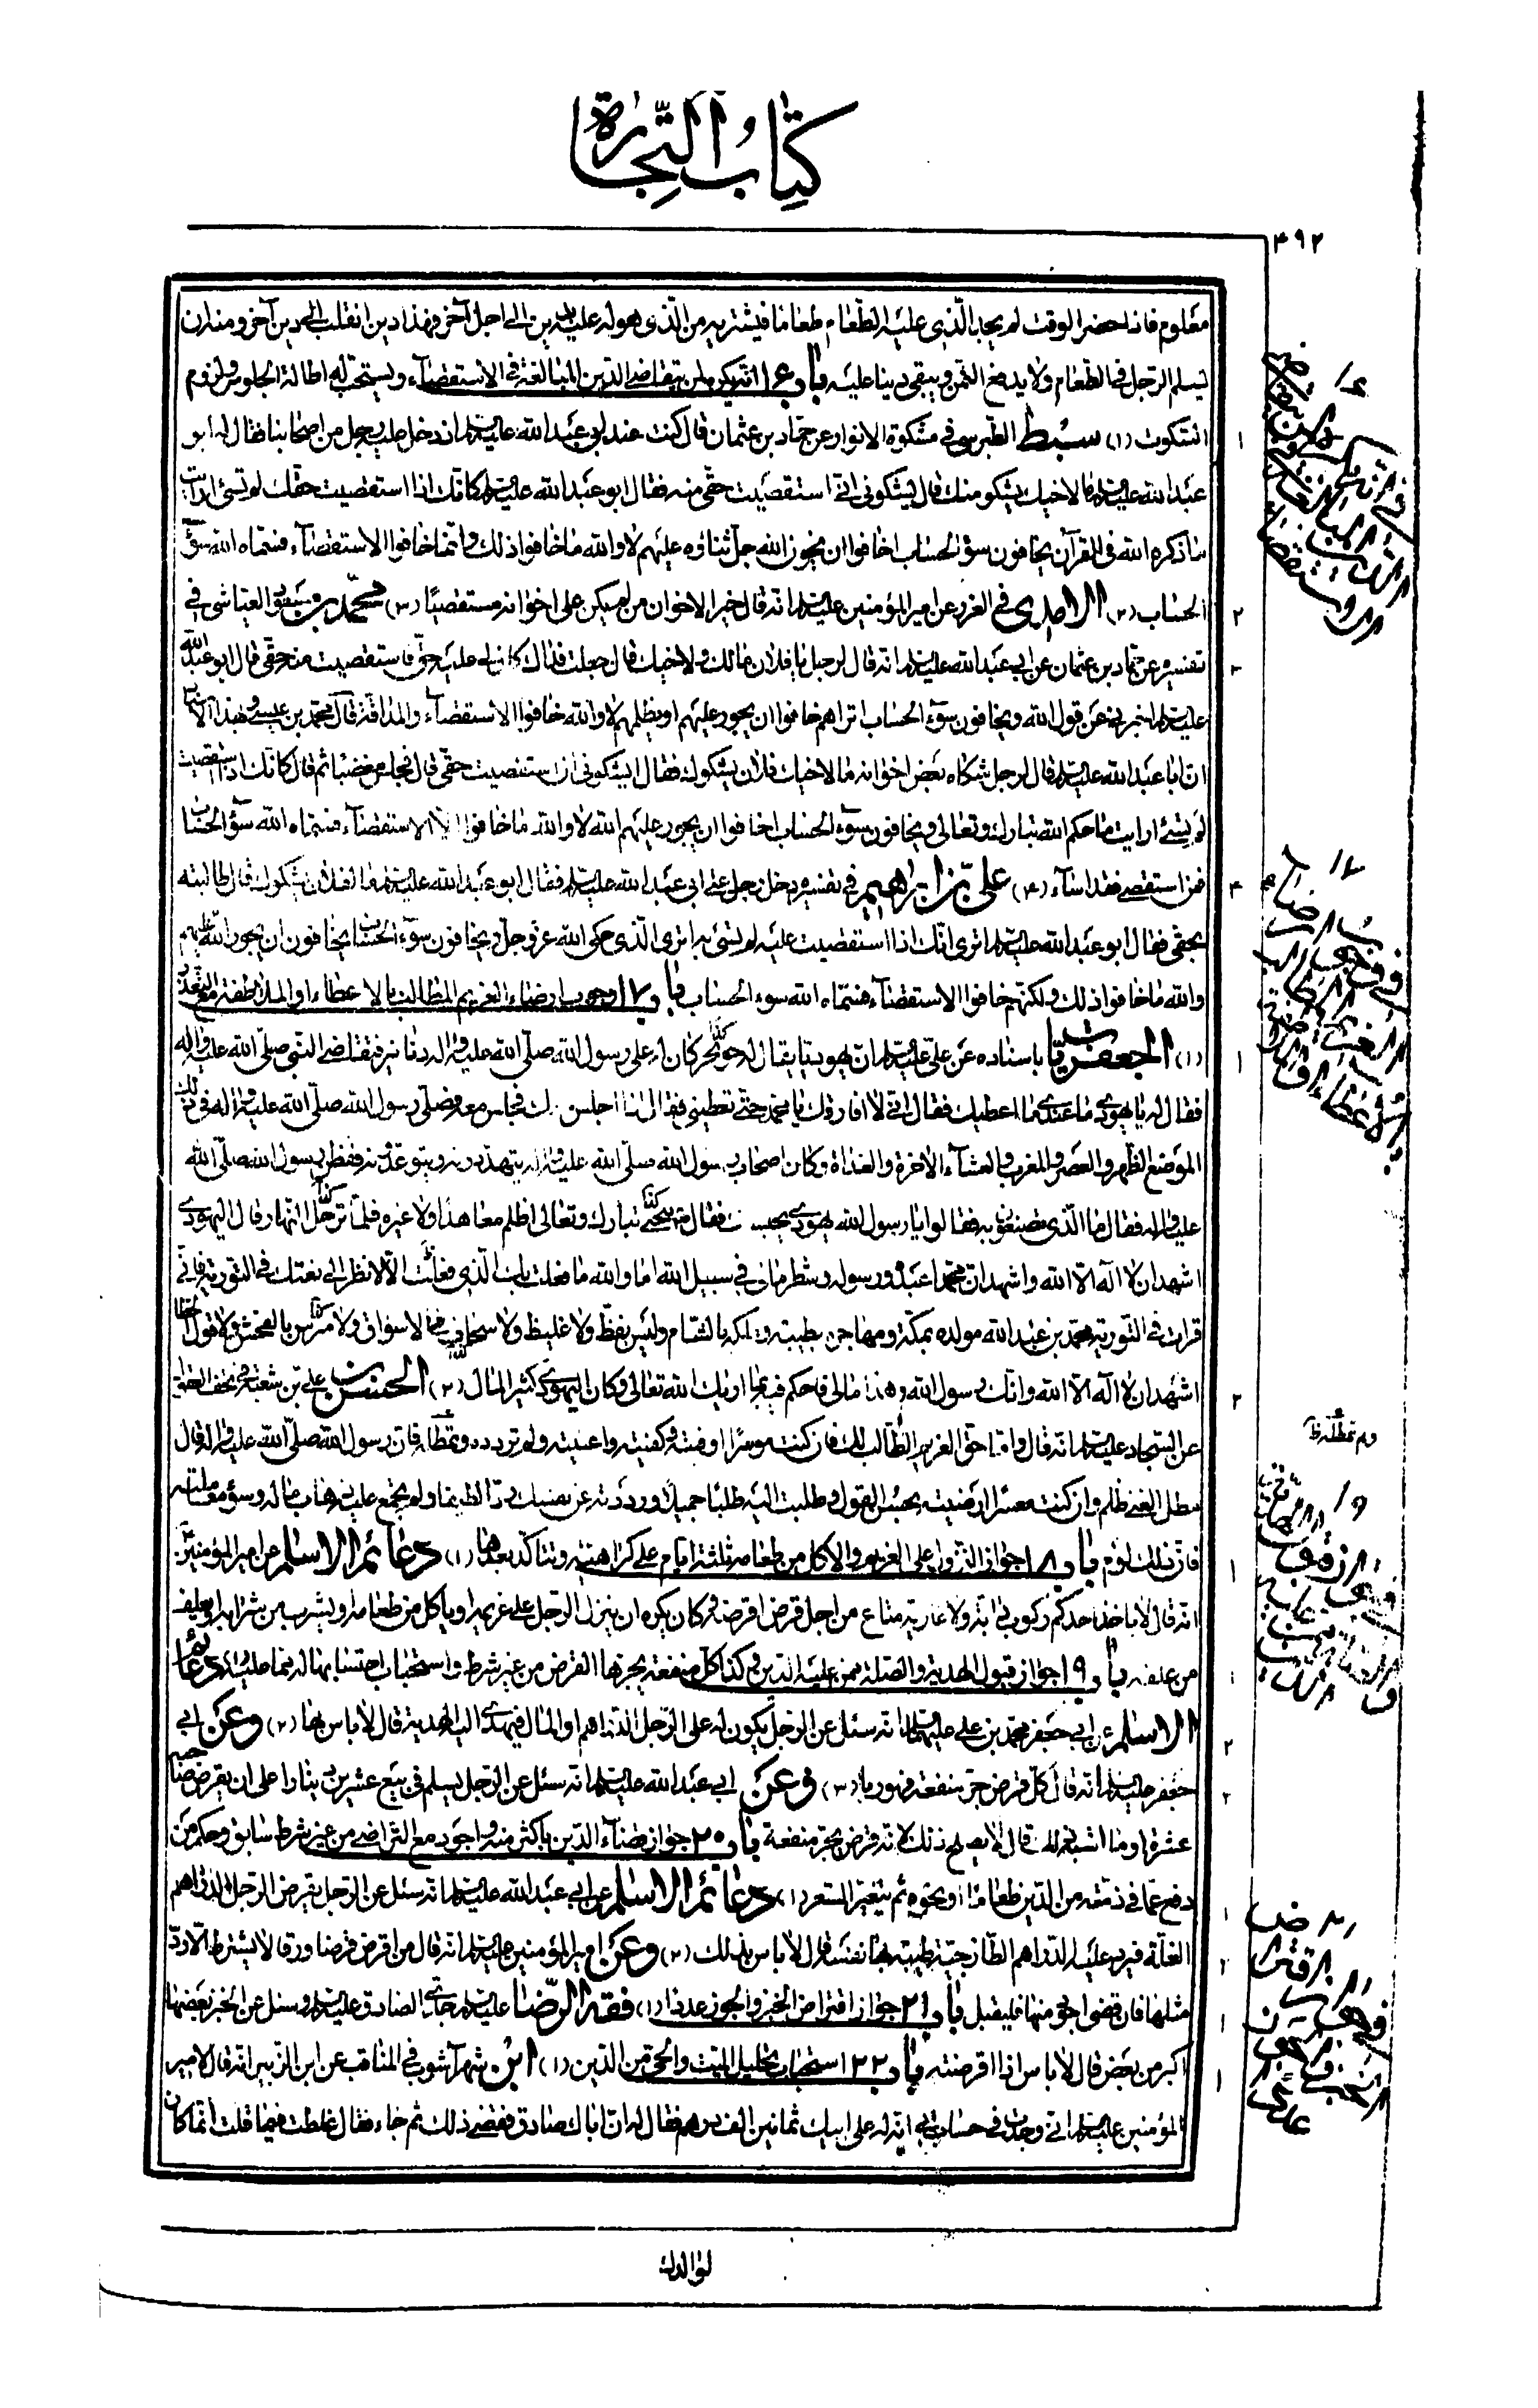 كتاب التجارة
٤٩٢
معلوم فاذا حضر الوقت لم يجد الذي عليه الطعام طعاما فيشتريه من الذي هو له عليه بدين الى اجل آخر فهذا دين انقلب الى دين آخر ومنه ان
يسلم الرجل في الطعام ولا يدفع الثمن ويبقى دينا عليه باب ١٦ انه يكره لمن يتقاضى الدين المبالغة في الاستقضاء ويستحب له اطالة الجلوس ولزوم
السكوت (١) سبط الطبرسي في مشكوة الانوار عن حماد بن عثمان قال كنت عند ابي عبد الله عليه السلام اذ دخل عليه رجل من اصحابنا فقال له ابو
عبد الله عليه السلام ما لاخيك يشكو منك قال يشكوني اني استقصيت حقي منه فقال ابو عبد الله عليه السلام كانك اذا استقصيت حقك لم تسئ ارايت
ما ذكره الله في القرآن يخافون سوء الحساب اخافوا ان يجوز الله جل ثناؤه عليهم لا والله ما خافوا ذلك وانما خافوا الاستقضاء فسماه الله سوء
الحساب (٢) الامدي في الغرر عن امير المؤمنين عليه السلام انه قال خير الاخوان من لم يكن على اخوانه مستقصيا (٣) محمد بن مسعود العياشي في
تفسيره عن حماد بن عثمان عن ابي عبد الله عليه السلام انه قال لرجل يا فلان مالك ولاخيك قال جعلت فداك كان لي عليه حق فاستقصيت منه حقي قال ابو عبد الله
عليه السلام اخبرني عن قول الله ويخافون سوء الحساب اتراهم خافوا ان يجور عليهم او يظلمهم لا والله خافوا الاستقضاء والمداقة قال محمد بن عيسى وبهذا الاسناد
ان ابا عبد الله عليه السلام قال لرجل شكاه بعض اخوانه ما لاخيك فلان يشكوك فقال ايشكوني ان استقصيت حقي قال فجلس مغضبا ثم قال كانك اذا استقصيت
لم تسئ ارايت ما حكم الله تبارك وتعالى ويخافون سوء الحساب اخافوا ان يجور عليهم الله لا والله ما خافوا الا الاستقضاء فسماه الله سوء الحساب
فمن استقصى فقد اساء (٤) علي بن ابراهيم في تفسيره دخل رجل على ابي عبد الله عليه السلام فقال ابو عبد الله عليه السلام ما لفلان يشكوك قال طالبته
بحقي فقال ابو عبد الله عليه السلام اترى انك اذا استقصيت عليه لم تسئ به اترى الذي حكى الله عز وجل ويخافون سوء الحساب يخافون ان يجور الله عليهم
والله ما خافوا ذلك ولكنهم خافوا الاستقضاء فسماه الله سوء الحساب باب ١٧ وجوب ارضاء الغريم المطالب بالاعطاء او الملاطفة مع التعذر
(١) الجعفريات باسناده عن علي عليه السلام ان يهوديا يقال له حويحر كان له على رسول الله صلى الله عليه واله دنانير فتقاضى النبي صلى الله عليه واله
فقال له يا يهودي ما عندي ما اعطيك فقال اني لا افارقك يا محمد حتى تعطيني فقال اذا اجلس معك فجلس معه فصلى رسول الله صلى الله عليه واله في ذلك
الموضع الظهر والعصر والمغرب والعشاء الاخرة والغداة وكان اصحاب رسول الله صلى الله عليه واله يتهددونه ويتوعدونه ففطن رسول الله صلى الله
عليه واله فقال ما الذي تصنعون به فقالوا يا رسول الله يهودي يحبسك فقال نهى تبارك وتعالى اظلم معاهدا ولا غيره فلما ترحل النهار قال اليهودي
اشهد ان لا اله الا الله واشهد ان محمدا عبده ورسوله وشطر مالي في سبيل الله اما والله ما فعلت بك الذي فعلت الا لانظر الى نعتك في التورية فاني
قرات في التورية محمد بن عبد الله مولده بمكة ومهاجره بطيبة وملكه بالشام وليس بفظ ولا غليظ ولا سخاب في الاسواق ولا مرس بالفحش ولا قول الخطا
اشهد ان لا اله الا الله وانك رسول الله وهذا مالي فاحكم فيه بما اريك الله تعالى وكان اليهودي كثير المال (٢) الحسن بن علي بن شعبة في تحف العقول
عن السجاد عليه السلام انه قال واما حق الغريم الطالب لك فان كنت موسرا اوفيته وكفيته واغنيته ولم تردده وتمطله فان رسول الله صلى الله عليه واله قال
مطل الغني ظلم وان كنت معسرا ارضيته بحسن القول وطلبت اليه طلبا جميلا ورددته عن نفسك ردا لطيفا ولم تجمع عليه ذهاب ماله وسوء معاملته
فان ذلك لؤم باب ١٨ جواز النزول على الغريم والاكل من طعامه ثلثة ايام على كراهية وتتاكد بعدها (١) دعائم الاسلام عن امير المؤمنين
انه قال لا ياخذ احدكم ركوب دابة ولا عارية متاع من اجل قرض اقرضه وكان يكره ان ينزل الرجل على غريمه او ياكل من طعامه او يشرب من شرابه او يعلف
من علفه باب ١٩ جواز قبول الهدية والصلة ممن عليه الدين وكذا كل منفعة يجرها القرض من غير شرط واستحباب احتسابها له مما عليه دعائم
الاسلام عن ابي جعفر محمد بن علي عليهما السلام انه سئل عن الرجل يكون له على الرجل الدراهم او المال فيهدي اليه الهدية قال لا باس بها (٢) وعن ابي
جعفر عليه السلام انه قال كل قرض جر منفعة فهو ربا (٣) وعن ابي عبد الله عليه السلام انه سئل عن الرجل يسلم في بيع عشرين دينارا على ان يقرض صاحبه
عشرة او ما اشبه ذلك قال لا يصلح ذلك لانه قرض يجر منفعة باب ٢٠ جواز قضاء الدين باكثر منه واجود مع التراضي من غير شرط سابق وحكم من
دفع عما في ذمته من الدين طعاما او نحوه ثم يتغير السعر (١) دعائم الاسلام عن ابي عبد الله عليه السلام انه سئل عن الرجل يقرض الرجل الدراهم
الغلة فيرد عليه الدراهم الطازجية طيبة بها نفسه قال لا باس بذلك (٢) وعن امير المؤمنين عليه السلام انه قال من اقرض قرضا ورقا لا يشترط الا رد
مثلها فان قضى اجود منها فليقبل باب ٢١ جواز اقتراض الخبز والجوز عددا (١) فقه الرضا عليه السلام الصادق عليه السلام وسئل عن الخبز بعضها
اكبر من بعض قال لا باس اذا اقرضته باب ٢٢ استحباب تحليل الميت والحي من الدين (١) ابن شهر آشوب في المناقب عن ابن الزبير انه قال لامير
المؤمنين عليه السلام اني وجدت في حساب ابي انه له على ابيك ثمانين الف درهم فقال له ان اباك صادق فقضى ذلك ثم جاء فقال غلطت فيما قلت انما كان
لوالدك